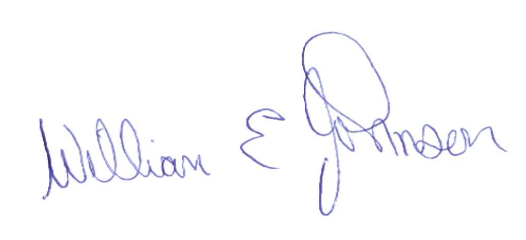 William E Johnson